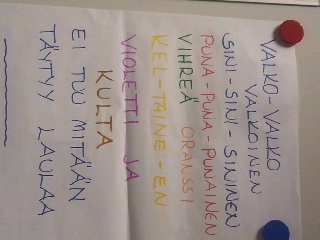 VALKO-VALKO
VALKOINEN
SINI-SINI-SININEN
PUNA-PUNA-PUNAINEN
VIHREÄ ORANSSI
KEL-TAINE-EN
VIOLETTI JA
KULTA
EI TUU MITÄÄN
TÄYTYY LAULAA